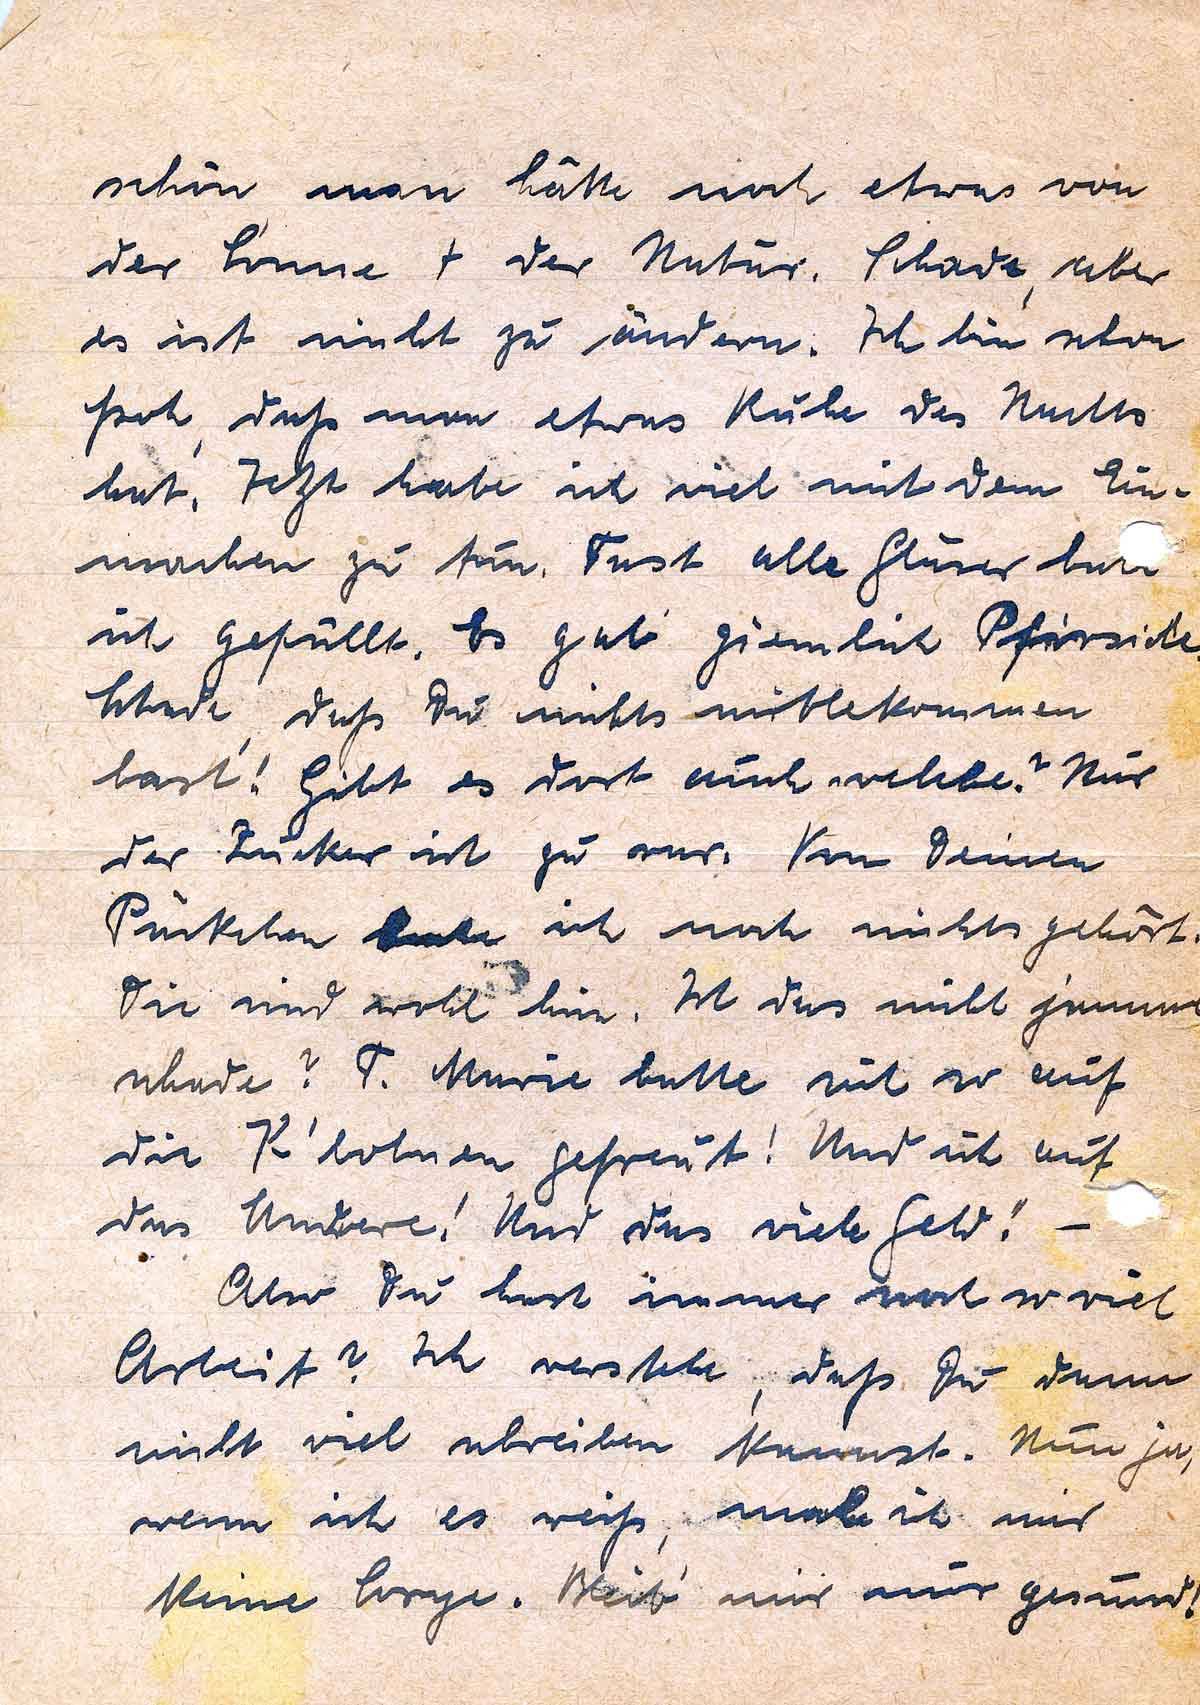 schön man hätte noch etwas von
der Sonne + der Natur. Schade, aber
es ist nicht zu ändern. Ich bin schon
froh, daß man etwas Ruhe des Nachts
hat. Jetzt habe ich viel mit dem Ein-
machen zu tun. Fast alle Gläser habe
ich gefüllt. Es gab ziemlich Pfirsiche.
Schade, daß Du nichts mitbekommen
hast! Gibt es dort auch welche? Nur
der Zucker ist zu rar. Von Deinen
Päckchen habe ich noch nichts gehört.
Die sind wohl hin. Ist das nicht jammer
schade? T. Marie hatte sich so auf
die K'bohnen gefreut! Und ich auf
das Andere! Und das viele Geld! –
Also Du hast immer noch so viel
Arbeit? Ich verstehe, daß Du dann
nicht viel schreiben kannst. Nun ja,
wenn ich es weiß, mache ich mir
keine Sorge. Bleib' mir nur gesund!